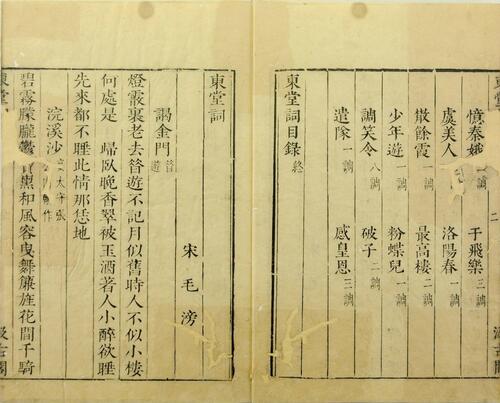 憤秦娥 一調 于飛樂 三調
虞美人 洛陽春 一調
散餘霞 一調 最高樓 二調
少年遊 一調 粉蝶兒 一調
調笑令 八調 破子 二調
遣隊 一調 感皇恩 三調
東堂詞目錄 終
東堂詞
宋 毛滂
謁金門 昔遊
燈霰裏老去昔遊不記月似舊時人不似小樓
何處是 歸臥晚香翠被玉酒著人小醉欲睡
先來都不睡此情那恁地
浣溪沙 太守張 作
碧霧朦朧鬱寶熏和風容曳舞簾旌花間千騎
東堂
汲古閣